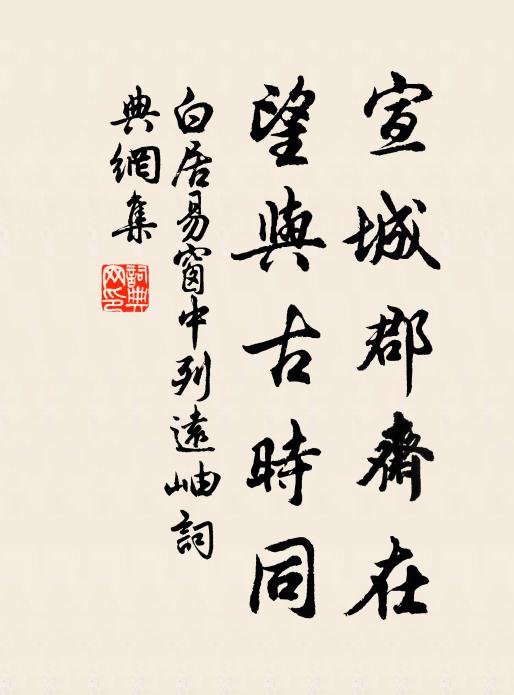 宣城郡齋在
望與古時同
白居易窗中列遠岫詞
典網集
詞典網印